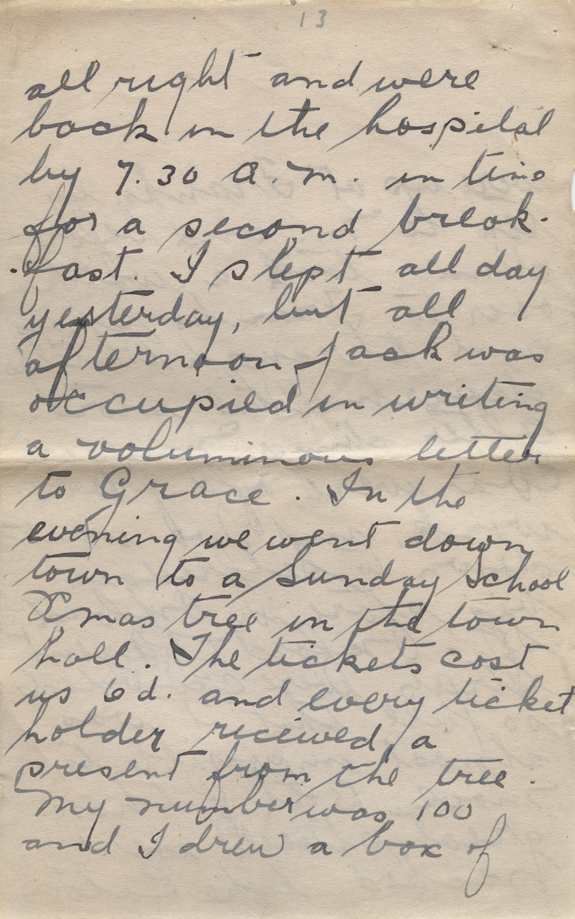 13
all right and were
back in the hospital
by 7.30 A.M. in time
for a second break-
fast. I slept all day
yesterday, but all
afternoon Jack was
occupied in writing
a voluminous letter
to Grace. In the
evening we went down
town to a Sunday School
Xmas tree in the town
hall. The tickets cost
us 6d. and every ticket
holder received a
present from the tree.
My number was 100
and I drew a box of